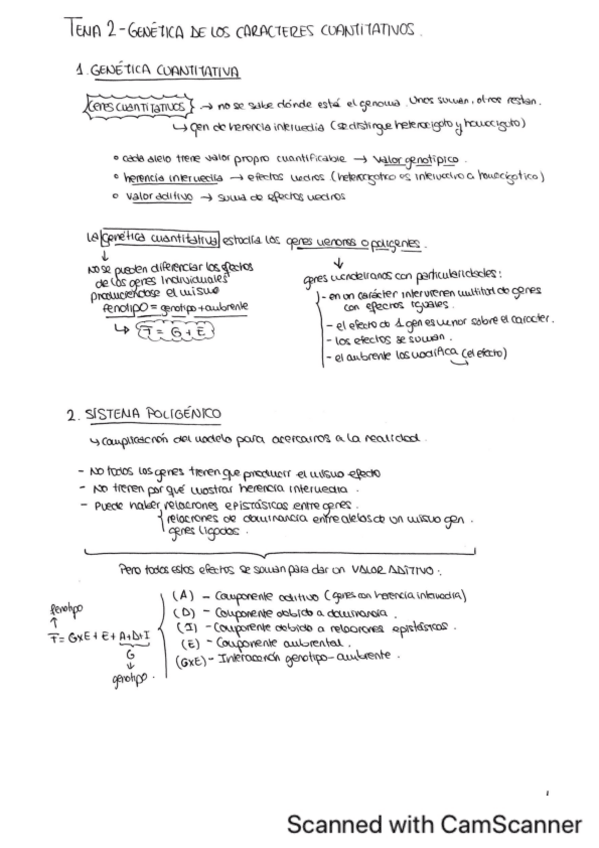 TEMA 2 - GENÉTICA DE LOS CARACTERES CUANTITATIVOS.
1. GENÉTICA CUANTITATIVA
GENES CUANTITATIVOS → no se sabe dónde está el genoma. Unos suman, otros restan.
↳ gen de herencia intermedia (se distingue heterocigoto y homocigoto)
° cada alelo tiene valor propio cuantificable → valor genotípico.
° herencia intermedia → efectos medios (heterocigótico es intermedio a homocigótico)
° valor aditivo → suma de efectos medios
La genética cuantitativa estudia los genes menores o poligenes.
↓
No se pueden diferenciar los efectos
de los genes individuales
produciéndose el mismo
fenotipo = genotipo + ambiente
↳ F = G + E
↓
genes mendelianos con particularidades:
- en un carácter intervienen multitud de genes
con efectos iguales.
- el efecto de 1 gen es menor sobre el carácter.
- los efectos se suman.
- el ambiente los modifica (el efecto)
2. SISTEMA POLIGÉNICO
↳ complicación del modelo para acercarnos a la realidad.
- No todos los genes tienen que producir el mismo efecto
- No tienen por qué mostrar herencia intermedia.
- Puede haber relaciones epistásicas entre genes.
relaciones de dominancia entre alelos de un mismo gen.
genes ligados.
Pero todos estos efectos se suman para dar un VALOR ADITIVO:
fenotipo
↑
F = GxE + E + A+D+I
G
↓
genotipo.
(A) - Componente aditivo (genes con herencia intermedia)
(D) - Componente debido a dominancia.
(I) - Componente debido a relaciones epistásicas.
(E) - Componente ambiental.
(GxE) - Interacción genotipo-ambiente.
Scanned with CamScanner